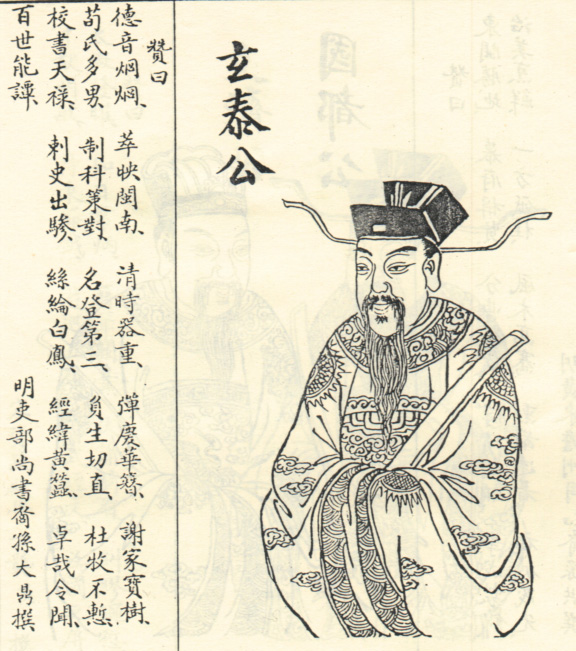 玄泰公
贊曰
德音炯炯、萃映閩南、清時器重、彈慶華簪、謝家寶樹、
荀氏多男、制科策對、名登第三、生切直、杜牧不慙、
校書天祿、刺史出驂、絲綸白鳳、經緯黃、卓哉令聞、
百世能譚、明吏部尚書裔孫大鼎撰